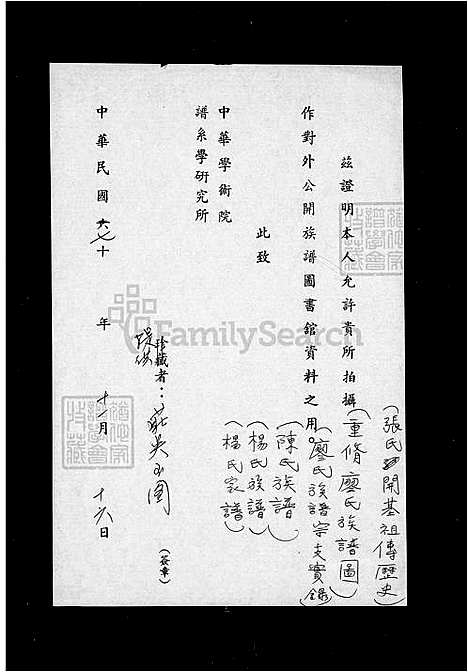 (張氏開基祖傳歷史)
(重脩廖氏族譜圖)
(廖氏族譜宗支實錄)
(陳氏族譜)
(楊氏族譜)
(楊氏家譜)
茲證明本人允許貴所拍攝
作對外公開族譜圖書館資料之用。
此致
中華學術院
譜系學研究所
珍藏者：
提供
(簽章)
中華民國六七十 年 十一月 十六日
FamilySearch